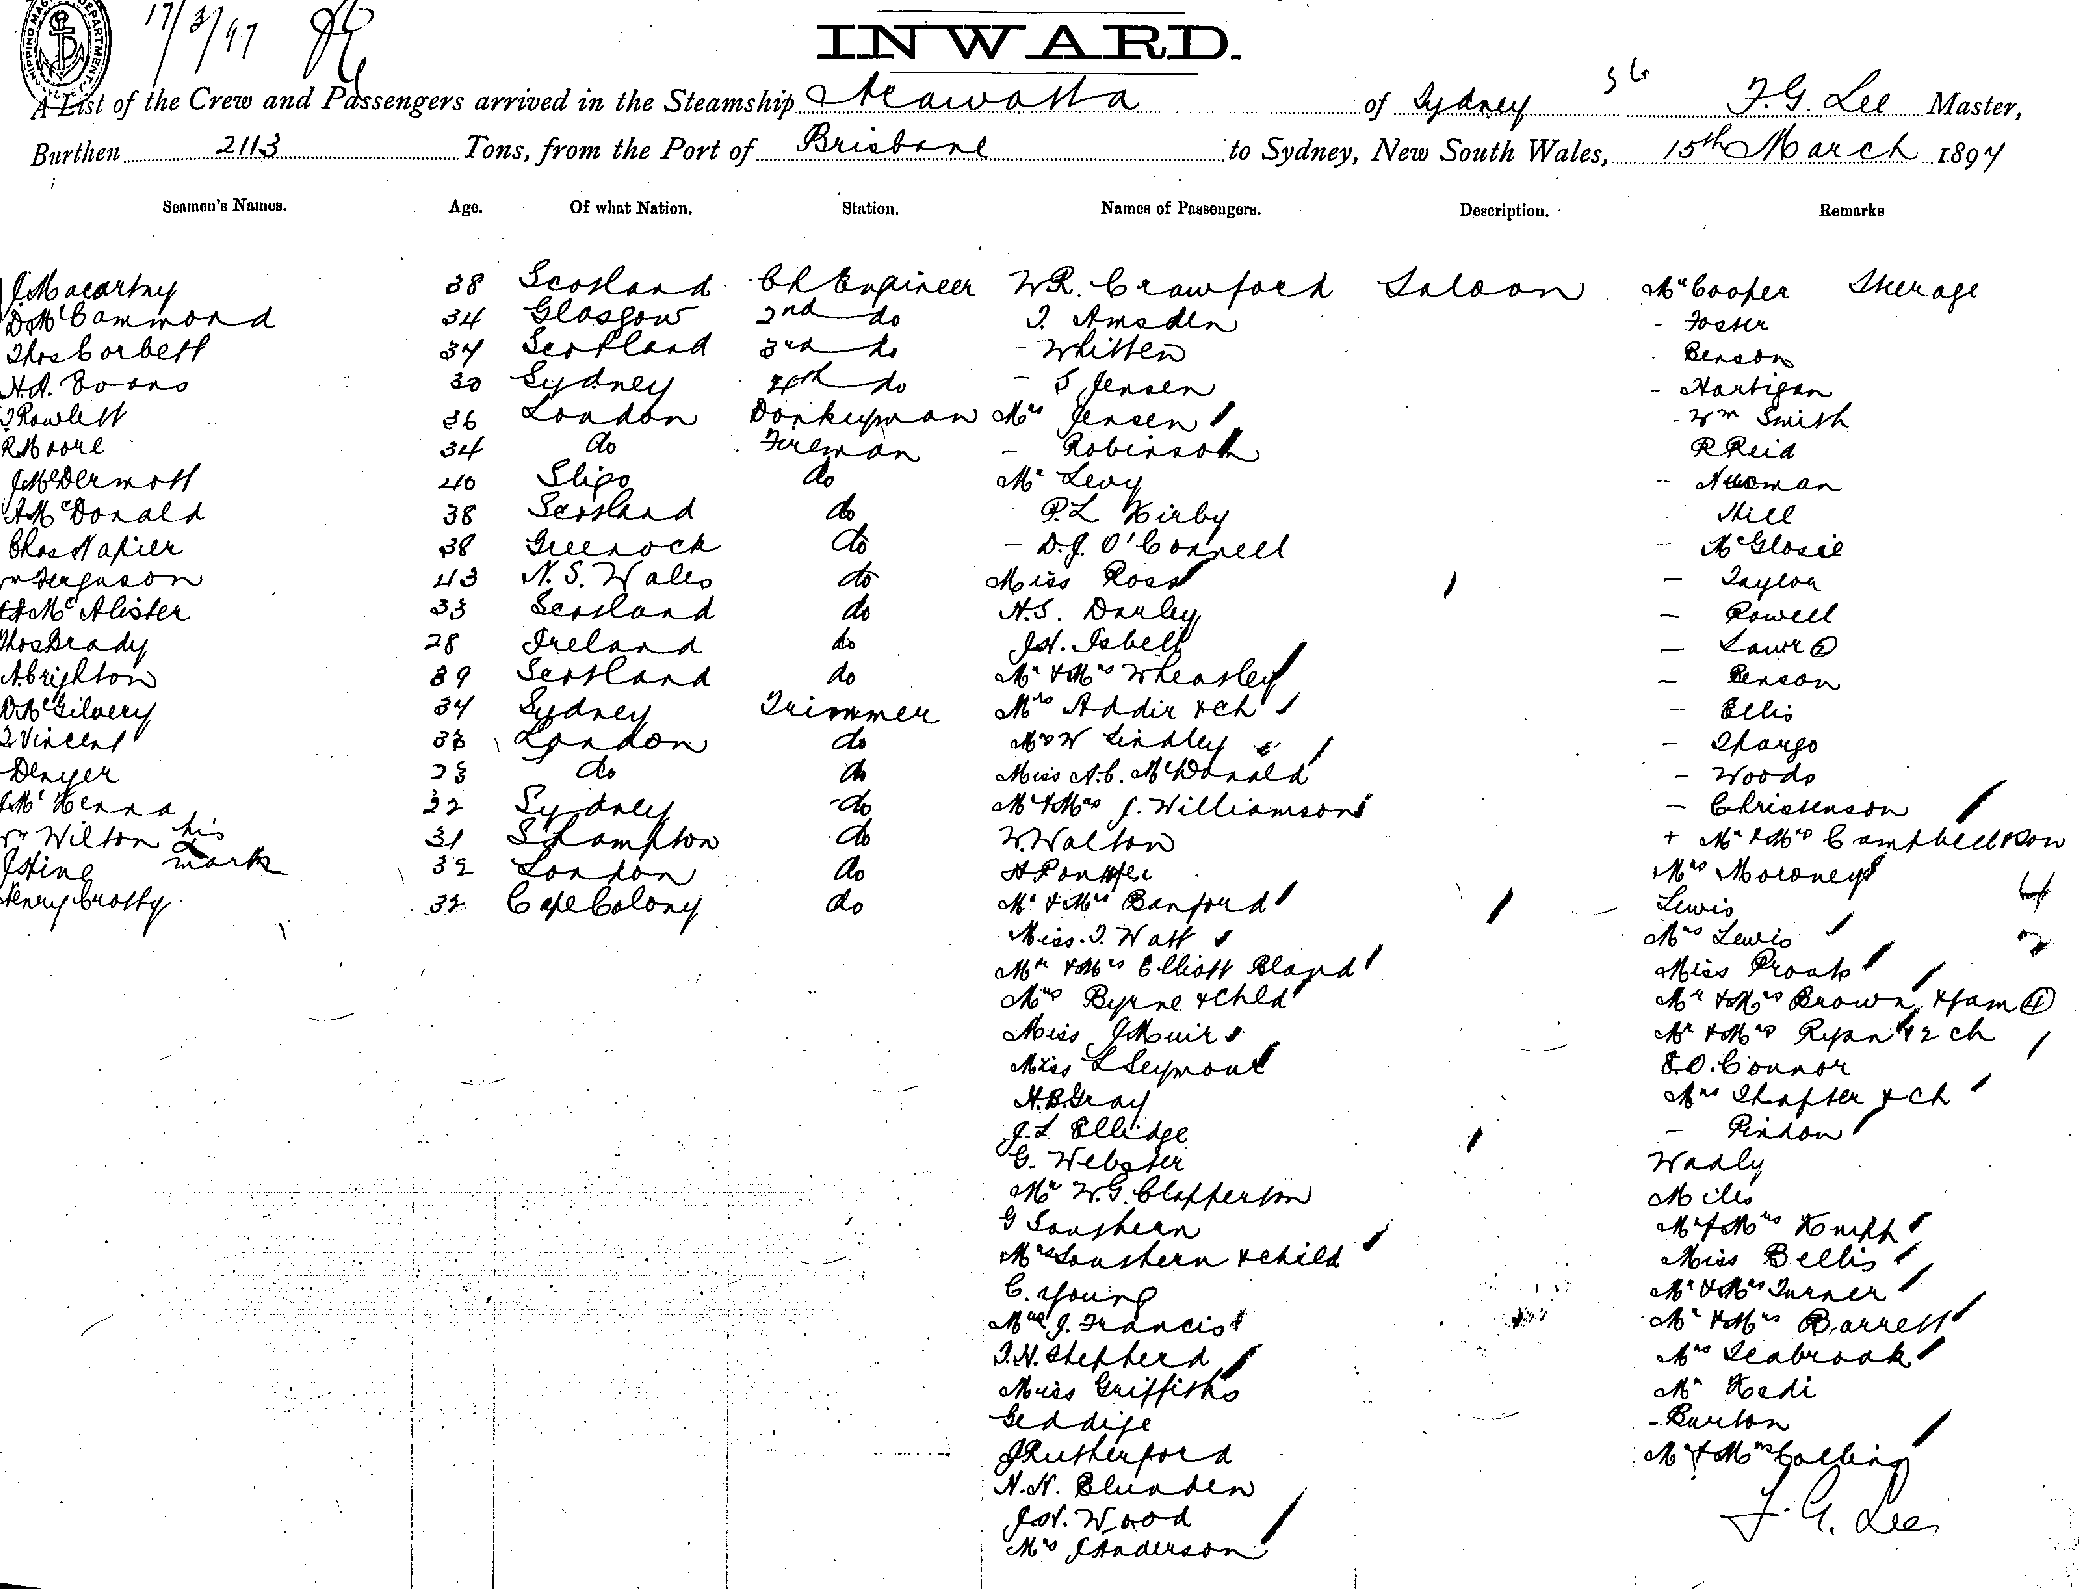 17/3/97
INWARD.
A List of the Crew and Passengers arrived in the Steamship Arawatta of Sydney F.G. Lee Master,
Burthen 2113 Tons, from the Port of Brisbane to Sydney, New South Wales, 15th March 1897
Seamen's Names. Age. Of what Nation. Station. Names of Passengers. Description. Remarks
J. Macartney 38 Scotland Ch Engineer W.R. Crawford Saloon Mr Cooper Steerage
D. McCammond 34 Glasgow 2nd do T. Amsden - Foster
Thos Corbett 37 Scotland 3rd do - Whitten Benson
H.A. Evans 30 Sydney 4th do - S Jensen - Hartigan
T Rowlett 36 London Donkeyman Mrs Jensen - Wm Smith
R Moore 34 do Fireman - Robinson R Reid
J McDermott 40 Sligo do Mr Levy - Newman
A McDonald 38 Scotland do P.L Kirby Hill
Chas Napier 38 Greenock do - D.J. O'Connell - McGlosie
Wm Ferguson 43 N.S. Wales do Miss Ross - Taylor
McAlister 33 Scotland do H.S. Darley - Powell
Thos Brady 28 Ireland do J.H. Isbell - Lawr
A Crighton 39 Scotland do Mr & Mrs Wheatley - Penson
D McGilvery 34 Sydney Trimmer Mrs Addir & Ch - Ellis
T Vincent 38 London do Mrs W Lindley - Thargo
Denyer 23 do do Miss A.C. McDonald - Woods
J McKenna 32 Sydney do Mr & Mrs J. Williamson - Christenson
Wm Wilton his 31 S'hampton do W. Walton + Mr & Mrs Campbell & Son
J Hine mark 32 London do A Mrs Moroney
Henry Crotty 32 Cape Colony do Mr & Mrs Banford Lewis 4
Miss. T. Watt Mrs Lewis 2
Mr & Mrs Elliott Bland Miss Proats
Mrs Byrne & Chld Mr & Mrs Brown & fam 4
Miss J Muir Mr & Mrs Ryan & 2 ch
Miss L Seymour E.O. Connor
H.B. Gray Mrs Shapter & ch
J.L Ellidge - Pindon
G. Webster Wadly
Mr W.G. Clapperton Miles
G Southern Mr & Mrs Knipp
Mrs Southern & child Miss Bellis
C. Young Mr & Mrs Turner
Mrs J. Francis Mr & Mrs Barrett
T.H. Shepherd Mrs Seabrook
Miss Griffiths Mr Kedi
Geddige - Burton
J Rutherford Mr & Mrs Colling
H.H. Blunden F. G. Lee
J.H. Wood
Mrs J Anderson